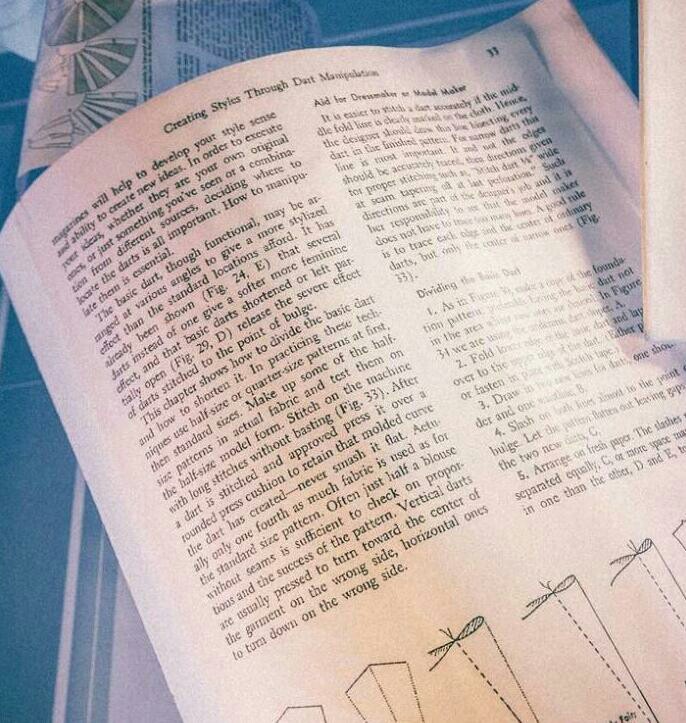 33
Creating Styles Through Dart Manipulation
magazines will help to develop your style sense
and ability to create new ideas. In order to execute
your ideas, whether they are your own original
ones, or just something you've seen or a combina-
tion from different sources, deciding where to
locate the darts is all important. How to manipu-
late them is essential.
The basic dart, though functional, may be ar-
ranged at various angles to give a more stylized
effect than the standard locations afford. It has
already been shown (Fig. 24, E) that several
darts instead of one give a softer more feminine
effect; and that basic darts shortened or left par-
tially open (Fig. 29, D) release the severe effect
of darts stitched to the point of bulge.
This chapter shows how to divide the basic dart
and how to shorten it. In practicing these tech-
niques use half-size or quarter-size patterns at first,
then standard sizes. Make up some of the half-
size patterns in actual fabric and test them on
the half-size model form. Stitch on the machine
with long stitches without basting (Fig. 33). After
a dart is stitched and approved press it over a
rounded press cushion to retain that molded curve
the dart has created—never smash it flat. Actu-
ally only one fourth as much fabric is used as for
the standard size pattern. Often just half a blouse
without seams is sufficient to check on propor-
tions and the success of the pattern. Vertical darts
are usually pressed to turn toward the center of
the garment on the wrong side, horizontal ones
to turn down on the wrong side.
Aid for Dressmaker or Model Maker
It is easier to stitch a dart accurately if the mid-
dle fold line is clearly marked on the cloth. Hence,
the designer should draw this line bisecting every
dart in the finished pattern. For narrow darts this
line is most important. If it and not the edges
should be accurately traced, then directions given
for proper stitching such as, "Stitch dart ⅜" wide
at seam tapering off at last perforation." Such
directions are part of the designer's job and it is
her responsibility to see that the model maker
does not have to trace too many lines. A good rule
is to trace edge and the center of ordinary
darts, but only the center of narrow ones (Fig.
33).
Dividing the Basic Dart
1. As in Figure 30, make a copy of the founda-
tion pattern, placing the basic dart not
in the area In Figure
31 we are using the underarm dart
2. Fold lower basic dart and lap
over to the upper
or fasten in place with Scotch tape
3. Draw in two one shoul-
der and one waistline, B.
4. Slash on both lines almost to the point of
bulge. Let the pattern flatten out leaving gaps
the two new darts, C.
5. Arrange on fresh paper. The slashes
separated equally, C, or more space may
in one than the other, D and E, to